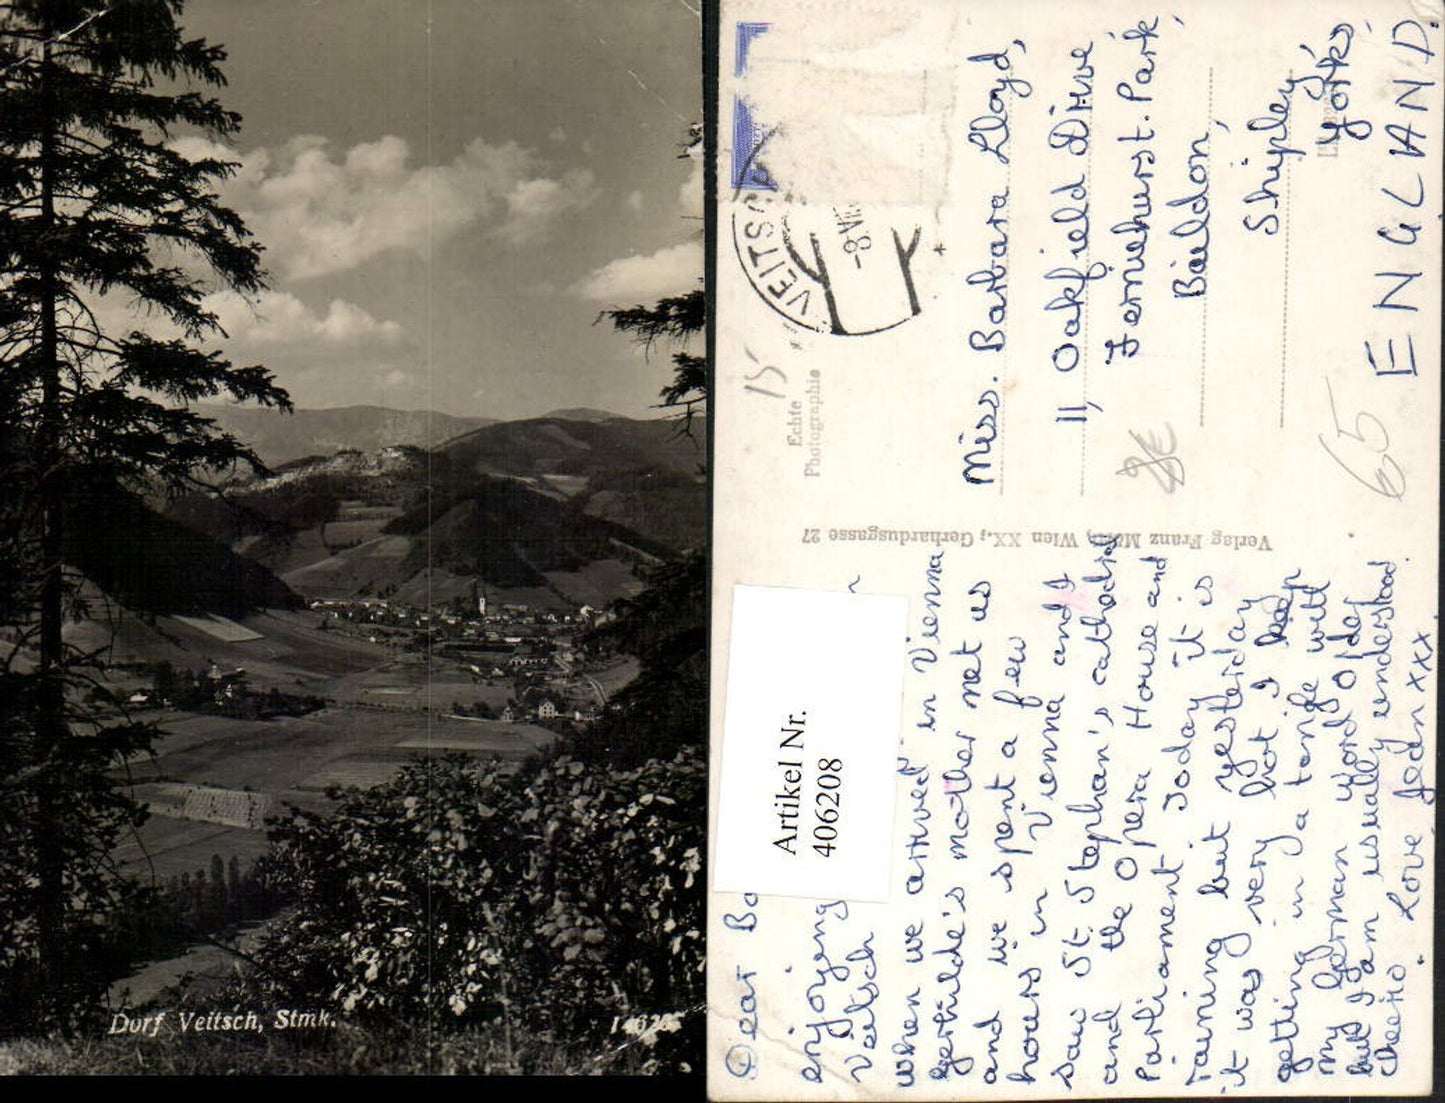 Dorf Veitsch, Stmk.
VEITSC
-8.VII
15
Echte
Photographie
Miss. Barbara Lloyd,
11, Oakfield Drive
Ferniehurst. Park,
Baildon,
Shipley,
Yorks.
ENGLAND.
65
Verlag Franz Wien XX., Gerhardusgasse 27
Artikel Nr.
406208
Dear Ba
enjoying
Veitsch
when we arrived in Vienna
Gerhilde's mother met us
and we spent a few
hours in Vienna and I
saw St. Stephan's cathedral
and the Opera House and
Parliament. Today it is
raining but yesterday
it was very hot I keep
getting in a tangle with
my German word order
but I am usually understood.
cheerio. Love Jean xxx.